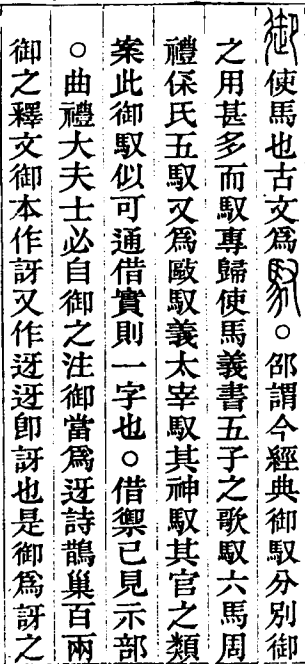 御使馬也古文爲馭○邵謂今經典御馭分別御
之用甚多而馭專歸使馬義書五子之歌馭六馬周
禮保氏五馭又爲敺馭義太宰馭其神馭其官之類
案此御馭似可通借實則一字也○借禦已見示部
○曲禮大夫士必自御之注御當爲迓詩鵲巢百兩
御之釋文御本作訝又作迓迓卽訝也是御爲訝之